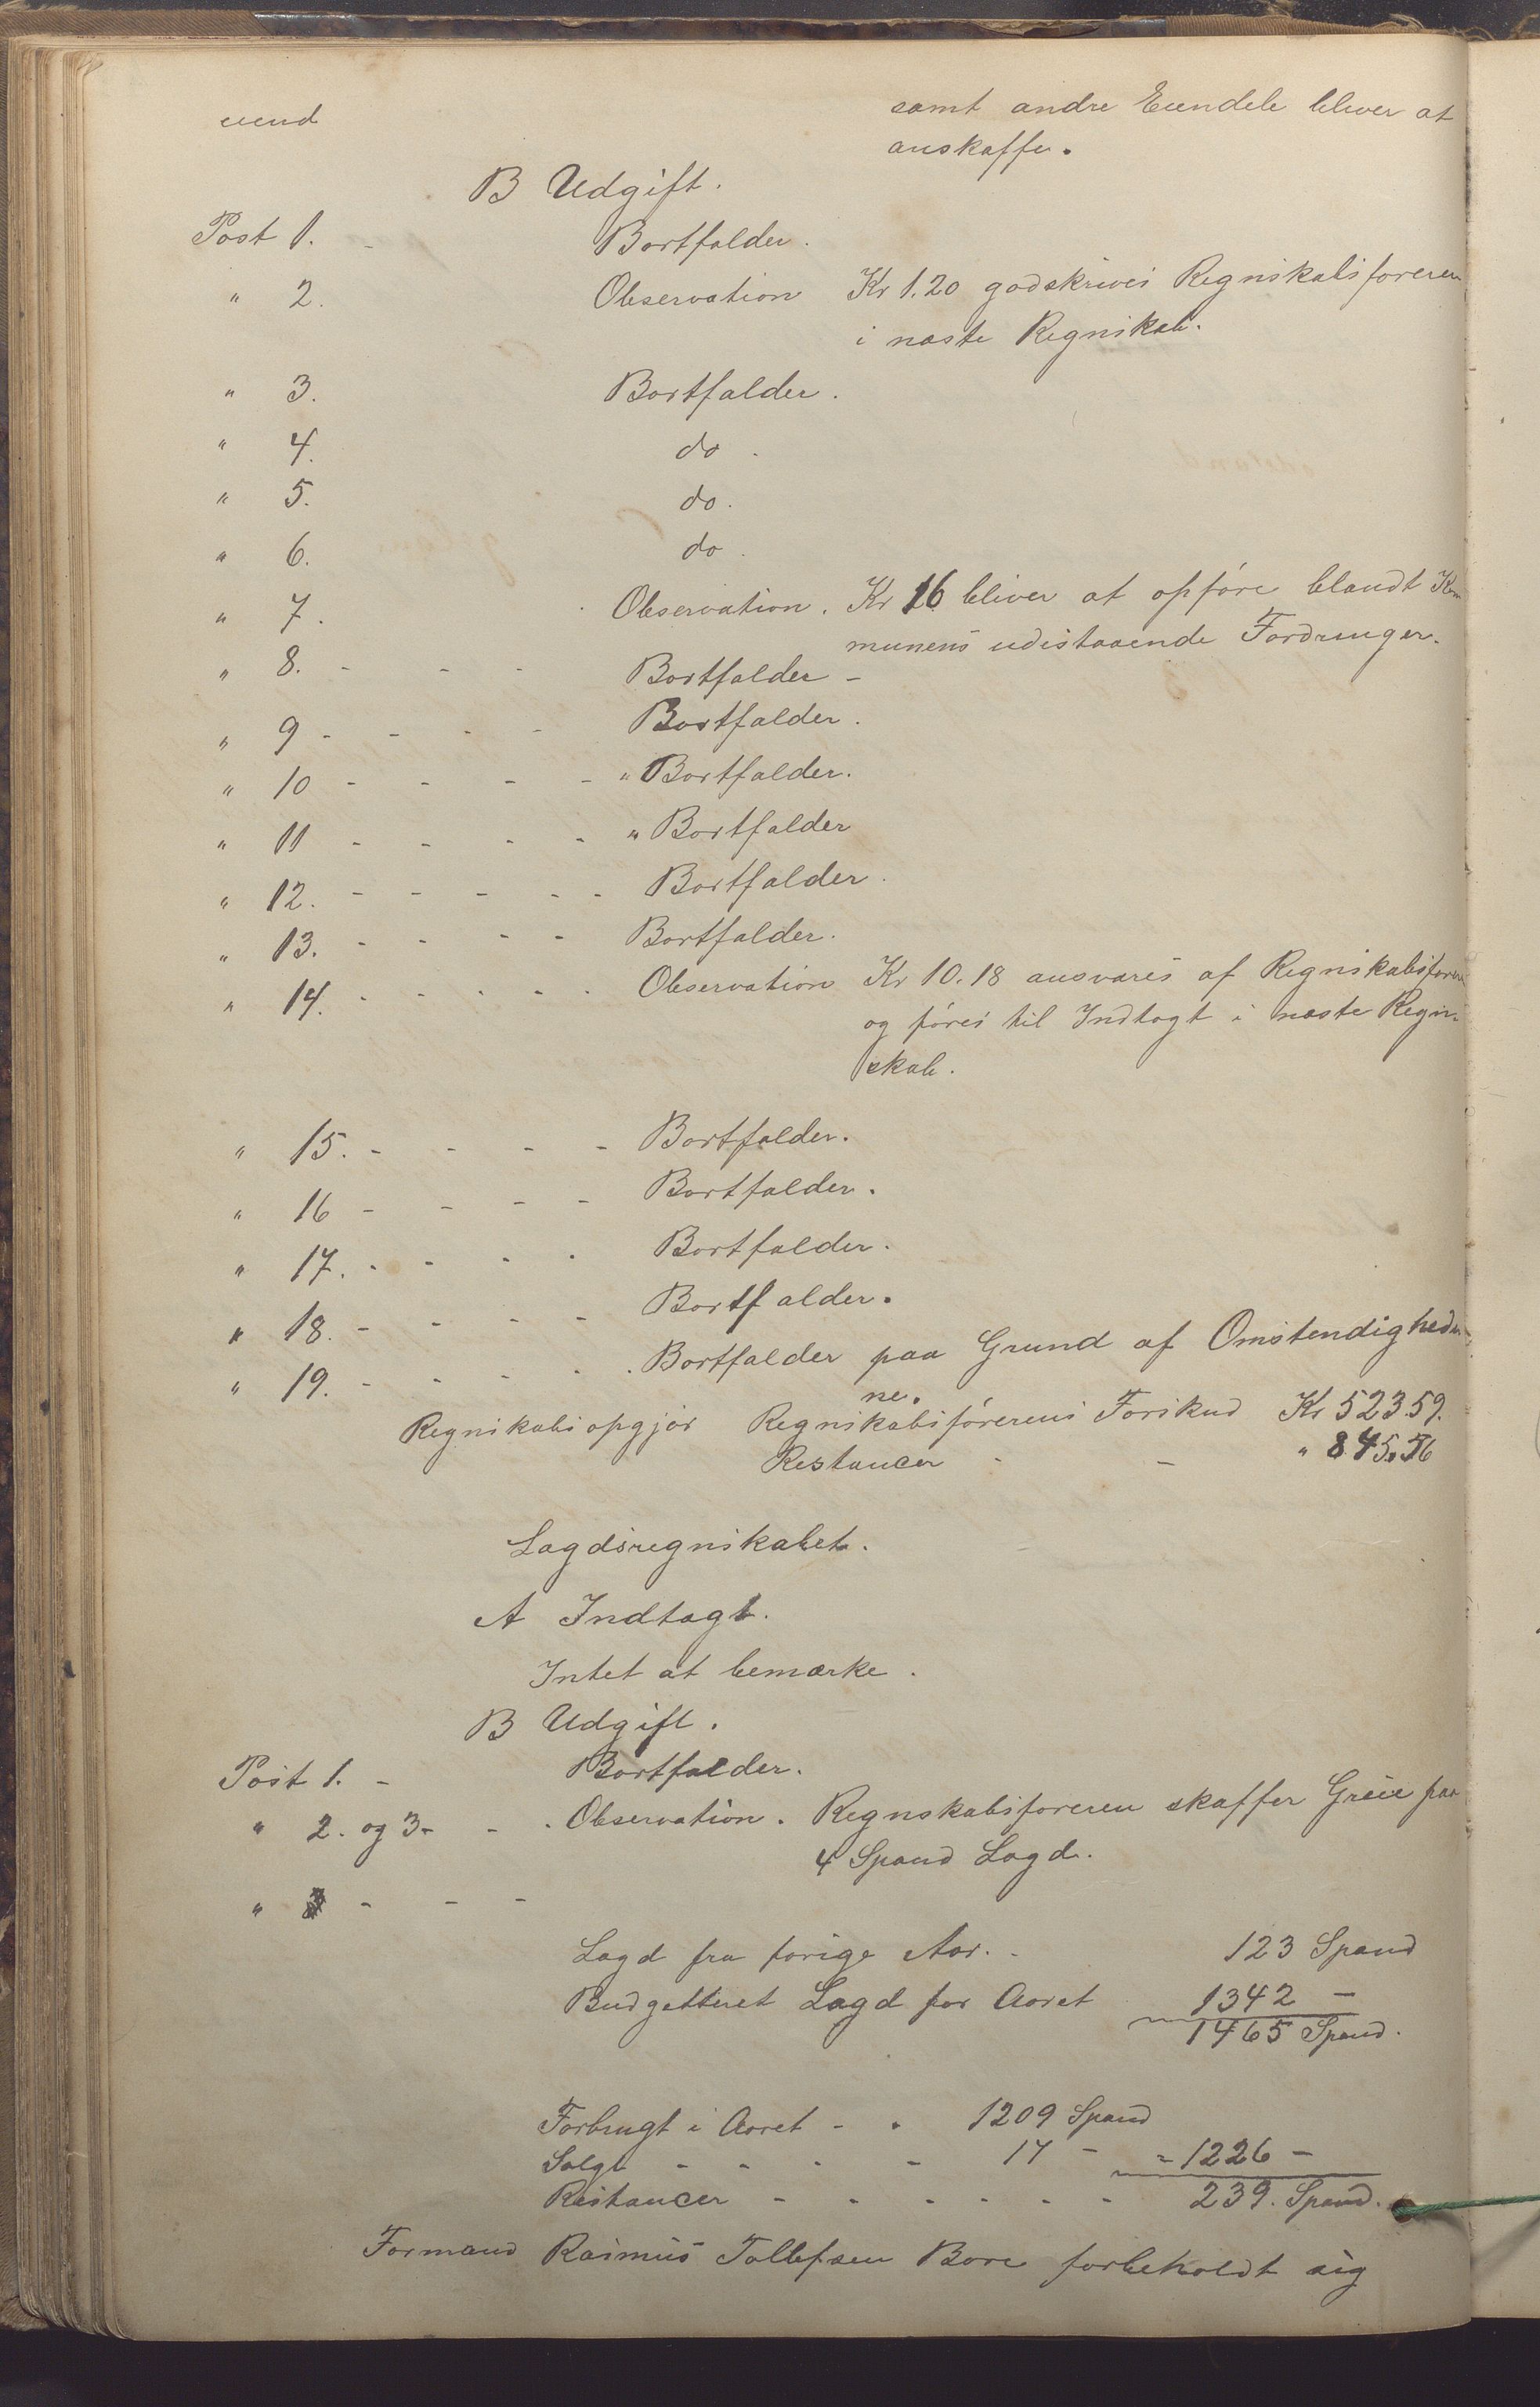 samt andre Eiendele bliver at
anskaffe.
B Udgift.
Post 1. - Bortfalder.
" 2. Observation Kr 1.20 godskrives Regnskabsføreren
i næste Regnskab.
" 3. Bortfalder.
" 4. do.
" 5. do.
" 6. do.
" 7. Observation. Kr 16 bliver at opføre blandt Kom
munens udestaaende Fordringer.
" 8. - - - Bortfalder -
" 9 - - - - Bortfalder.
" 10 - - - - " Bortfalder.
" 11 - - - - " Bortfalder
" 12. - - - - - Bortfalder.
" 13. - - - - Bortfalder.
" 14. - - - - - Observation Kr 10.18 ansvares af Regnskabsføreren
og føres til Indtægt i næste Regn-
skab.
" 15. - - - - Bortfalder.
" 16 - - - - Bortfalder.
" 17. - - - - Bortfalder.
" 18. - - - - Bortfalder.
" 19. - - - - - Bortfalder paa Grund af Omstendigheder
ne.
Regnskabsopgjør Regnskabsførerens Forskud Kr 523.59.
Restancer - - " 845.56
Lægdsregnskabet.
A Indtægt.
Intet at bemærke.
B Udgift.
Post 1. - Bortfalder.
" 2. og 3 - - - Observation. Regnskabsføreren skaffer Greie paa
4 Spand Lægd.
" 3 - - -
Lægd fra forige Aar. - 123 Spand
Budgetteret Lægd for Aaret 1342 -
1465 Spand.
Forbrugt i Aaret - - 1209 Spand
Solgt - - - - 17 - = 1226 -
Restancer - - - - - - 239. Spand.
Formand Rasmus Tollefsen Bore forbeholdt sig